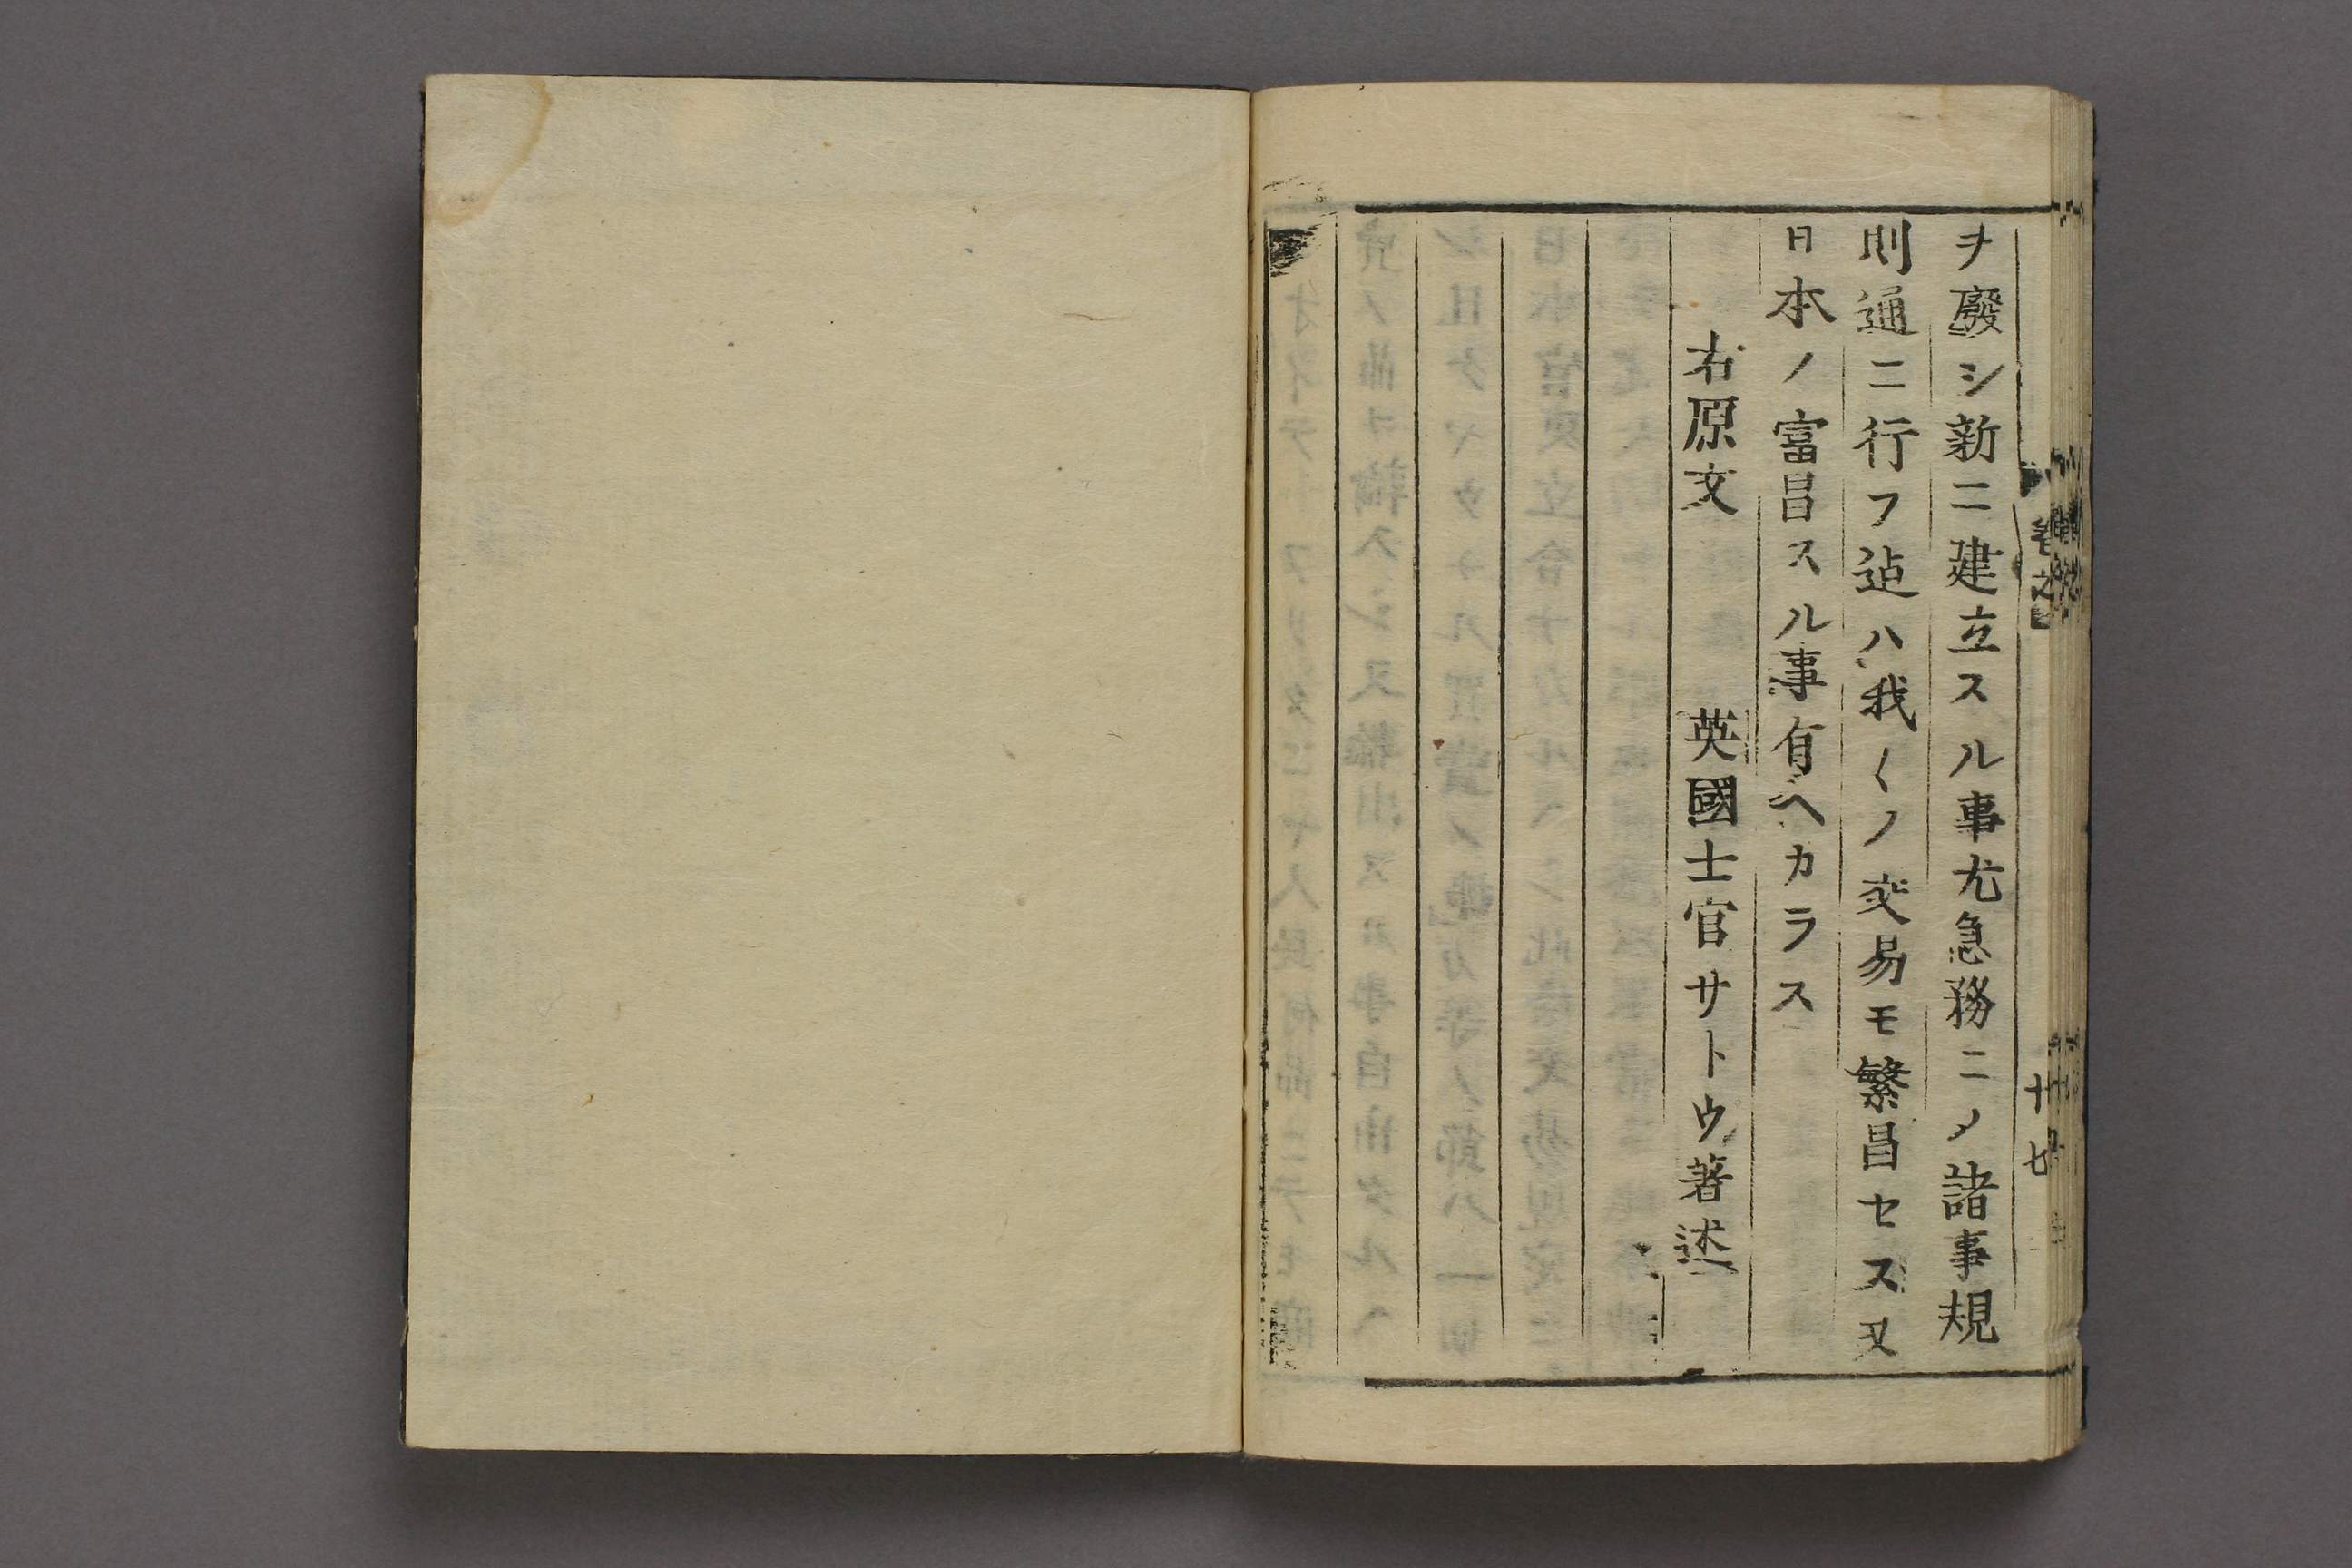 ヲ廢シ新ニ建立スル事尤急務ニノ諸事規
則通ニ行フ迠ハ我〱ノ交易モ繁昌セス又
日本ノ富昌スル事有ヘカラス
右原文　英國士官サトウ著述
卷之
十七